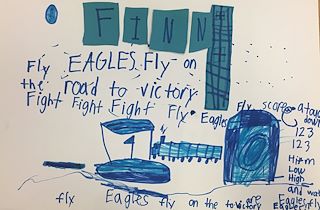 FINN
Fly EAGLES Fly on
the road to victory
Fight Fight Fight Fly
Eagles Fly score a touch
down
123
123
Hit m
Low
High
and wat
Eagles fly
fly Eagles fly on the to victory